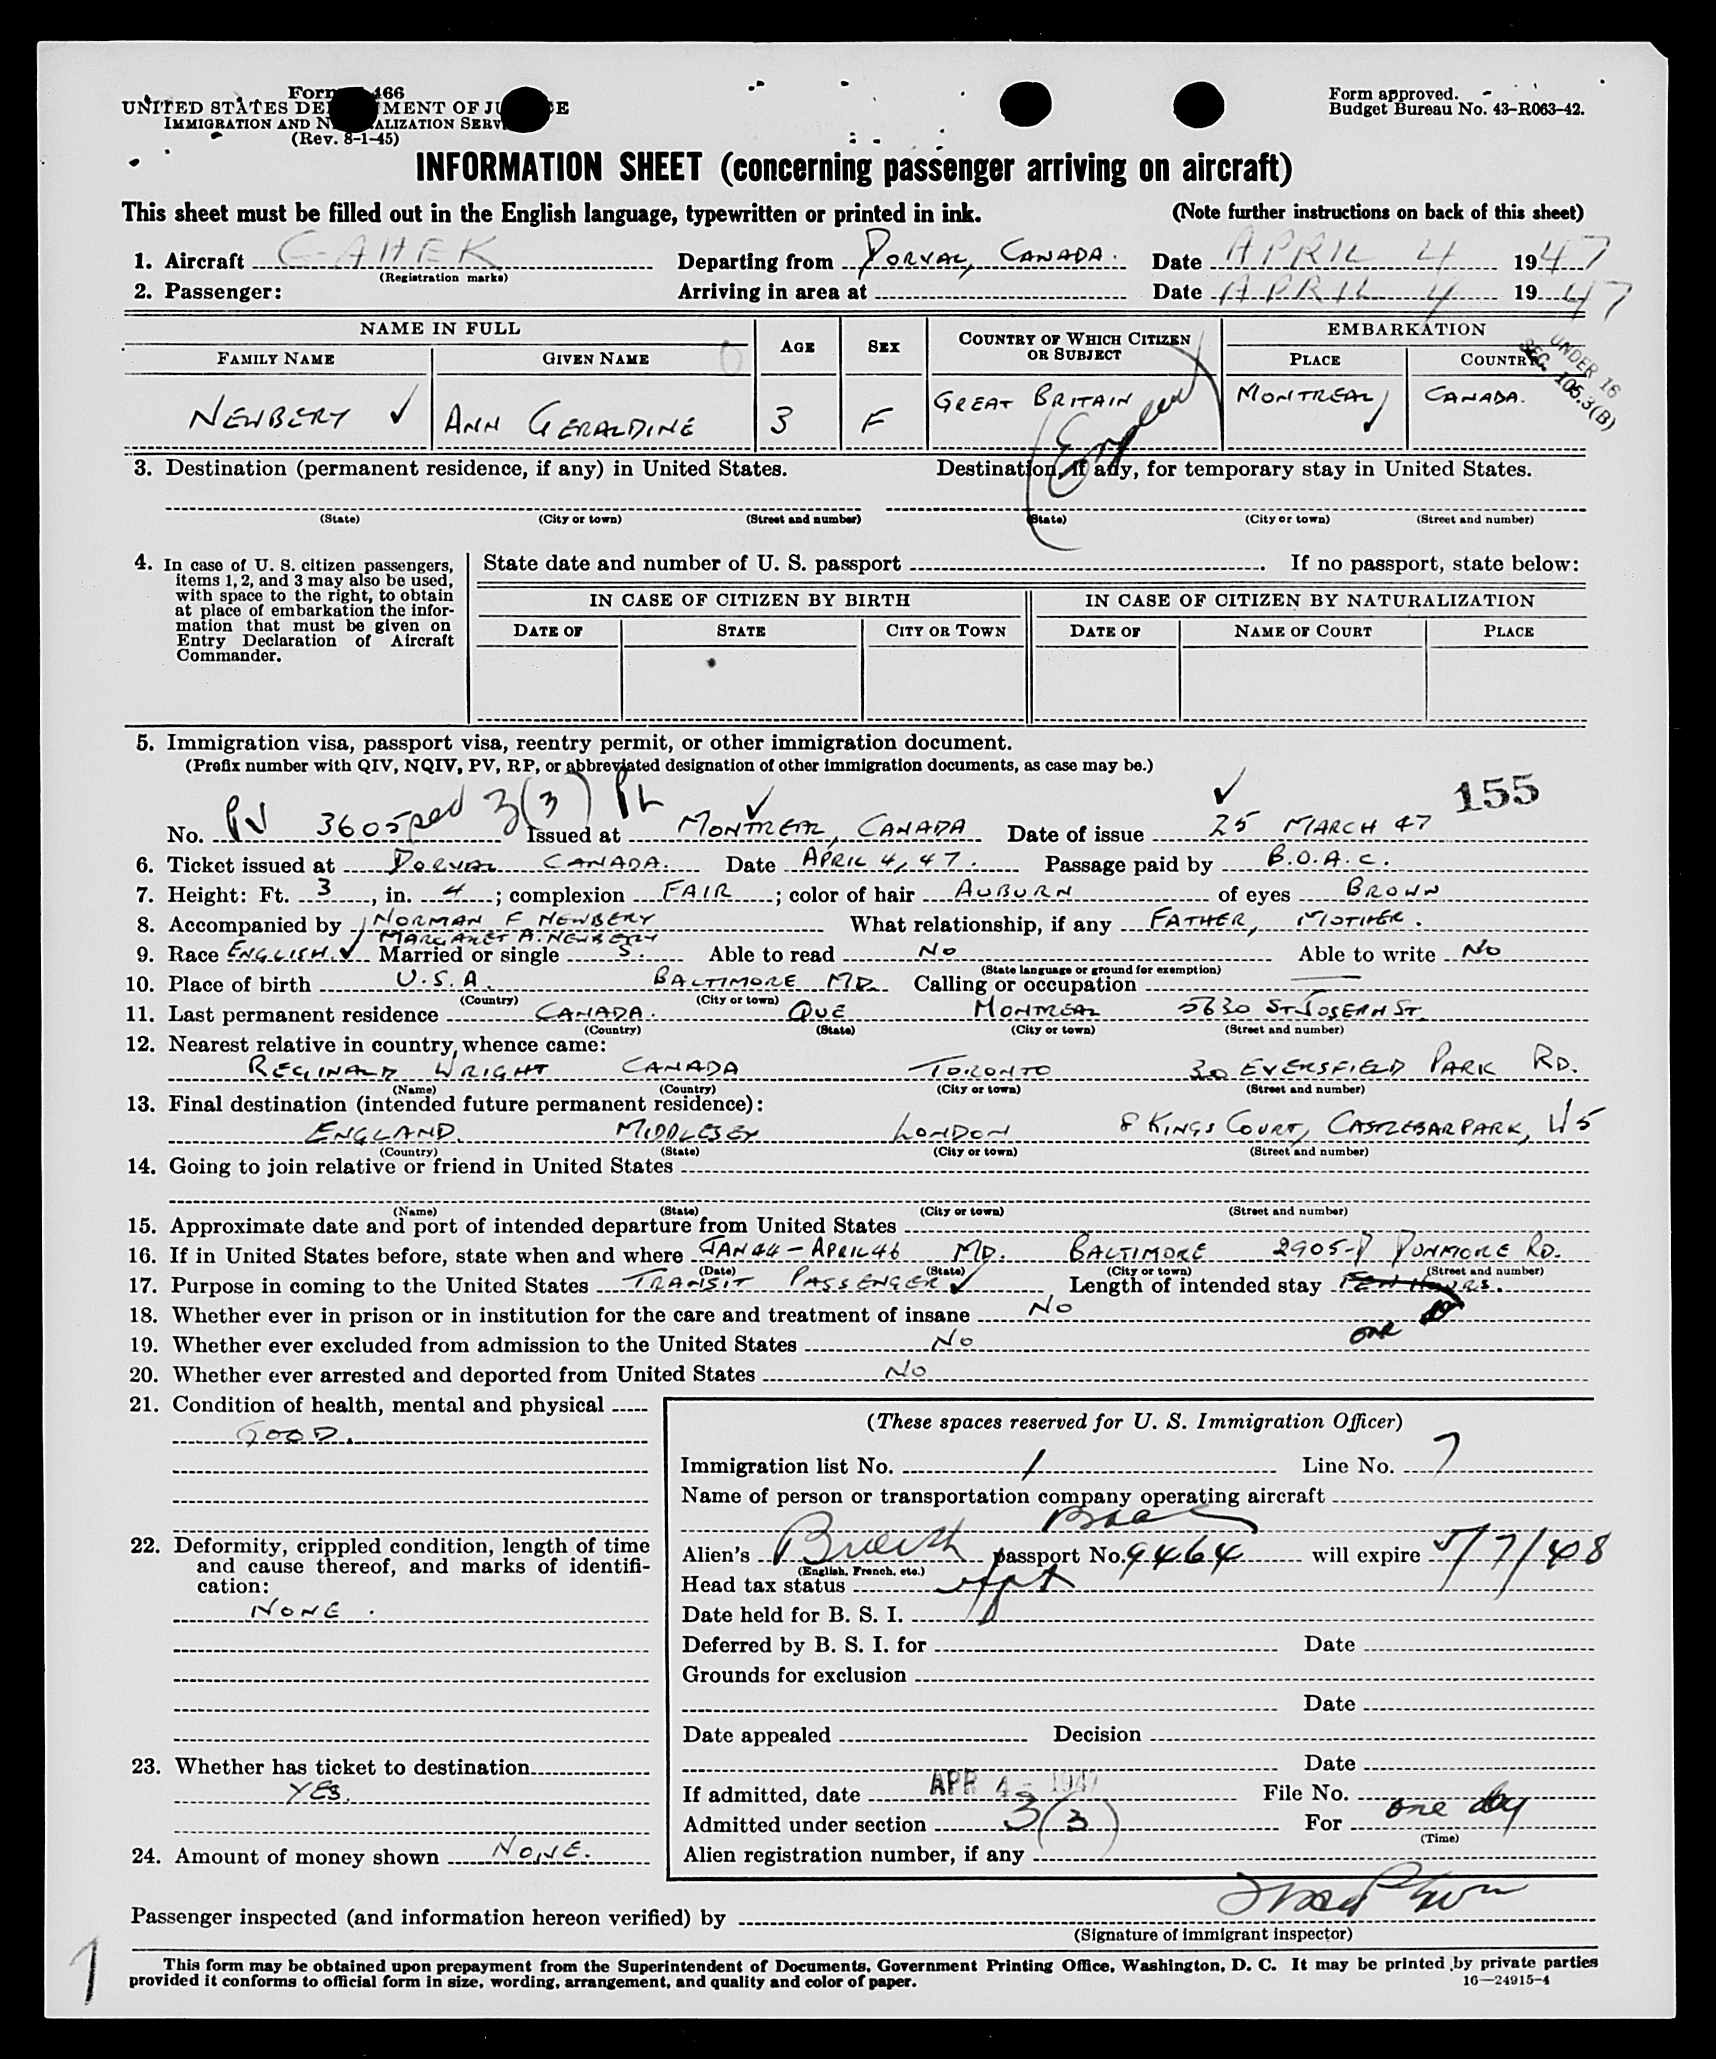 Form 466
UNITED STATES DE MENT OF JU E
IMMIGRATION AND N ALIZATION SERV
(Rev. 8-1-45)
Form approved.
Budget Bureau No. 43-R063-42.
INFORMATION SHEET (concerning passenger arriving on aircraft)
This sheet must be filled out in the English language, typewritten or printed in ink. (Note further instructions on back of this sheet)
1. Aircraft G-AHEK Departing from DORVAL, CANADA. Date APRIL 4 1947
(Registration marks)
2. Passenger: Arriving in area at Date APRIL 4 1947
NAME IN FULL AGE SEX COUNTRY OF WHICH CITIZEN OR SUBJECT EMBARKATION
FAMILY NAME GIVEN NAME PLACE COUNTRY
UNDER 16
SEC. 105.3(B)
NEWBERY ✓ ANN GERALDINE 3 F GREAT BRITAIN MONTREAL ✓ CANADA.
3. Destination (permanent residence, if any) in United States. Destination, if any, for temporary stay in United States.
(State) (City or town) (Street and number) (State) (City or town) (Street and number)
4. In case of U. S. citizen passengers, items 1, 2, and 3 may also be used, with space to the right, to obtain at place of embarkation the information that must be given on Entry Declaration of Aircraft Commander.
State date and number of U. S. passport . If no passport, state below:
IN CASE OF CITIZEN BY BIRTH IN CASE OF CITIZEN BY NATURALIZATION
DATE OF STATE CITY OR TOWN DATE OF NAME OF COURT PLACE
5. Immigration visa, passport visa, reentry permit, or other immigration document.
(Prefix number with QIV, NQIV, PV, RP, or abbreviated designation of other immigration documents, as case may be.)
155
No. PV 3605 3(3) Issued at MONTREAL, CANADA Date of issue 25 MARCH 47
6. Ticket issued at DORVAL CANADA. Date APRIL 4, 47. Passage paid by B.O.A.C.
7. Height: Ft. 3, in. 4; complexion FAIR; color of hair AUBURN of eyes BROWN
8. Accompanied by NORMAN F NEWBERY What relationship, if any FATHER, MOTHER.
MARGARET A. NEWBERY
9. Race ENGLISH ✓ Married or single S. Able to read NO Able to write NO
(State language or ground for exemption)
10. Place of birth U.S.A. BALTIMORE MD. Calling or occupation —
(Country) (City or town)
11. Last permanent residence CANADA. QUE MONTREAL 5630 ST JOSEPH ST.
(Country) (State) (City or town) (Street and number)
12. Nearest relative in country whence came:
REGINALD WRIGHT CANADA TORONTO 30 EVERSFIELD PARK RD.
(Name) (Country) (City or town) (Street and number)
13. Final destination (intended future permanent residence):
ENGLAND. MIDDLESEX LONDON 8 KINGS COURT, CASTLEBAR PARK, W5
(Country) (State) (City or town) (Street and number)
14. Going to join relative or friend in United States
(Name) (State) (City or town) (Street and number)
15. Approximate date and port of intended departure from United States
16. If in United States before, state when and where JAN 44 - APRIL 46 MD. BALTIMORE 2905-D DUNMORE RD.
(Date) (State) (City or town) (Street and number)
17. Purpose in coming to the United States TRANSIT PASSENGER ✓ Length of intended stay FEW HOURS.
18. Whether ever in prison or in institution for the care and treatment of insane NO
one
19. Whether ever excluded from admission to the United States NO
20. Whether ever arrested and deported from United States NO
21. Condition of health, mental and physical
GOOD.
22. Deformity, crippled condition, length of time and cause thereof, and marks of identification:
NONE.
23. Whether has ticket to destination
YES.
24. Amount of money shown NONE.
(These spaces reserved for U. S. Immigration Officer)
Immigration list No. 1 Line No. 7
Name of person or transportation company operating aircraft
BOAC
Alien's British passport No. 9464 will expire 5/7/48
(English, French, etc.)
Head tax status
Date held for B. S. I.
Deferred by B. S. I. for Date
Grounds for exclusion
Date
Date appealed Decision
Date
If admitted, date APR 4 - 1947 File No.
Admitted under section 3(3) For one day
(Time)
Alien registration number, if any
Passenger inspected (and information hereon verified) by
(Signature of immigrant inspector)
This form may be obtained upon prepayment from the Superintendent of Documents, Government Printing Office, Washington, D. C. It may be printed by private parties
provided it conforms to official form in size, wording, arrangement, and quality and color of paper. 16—24915-4
1